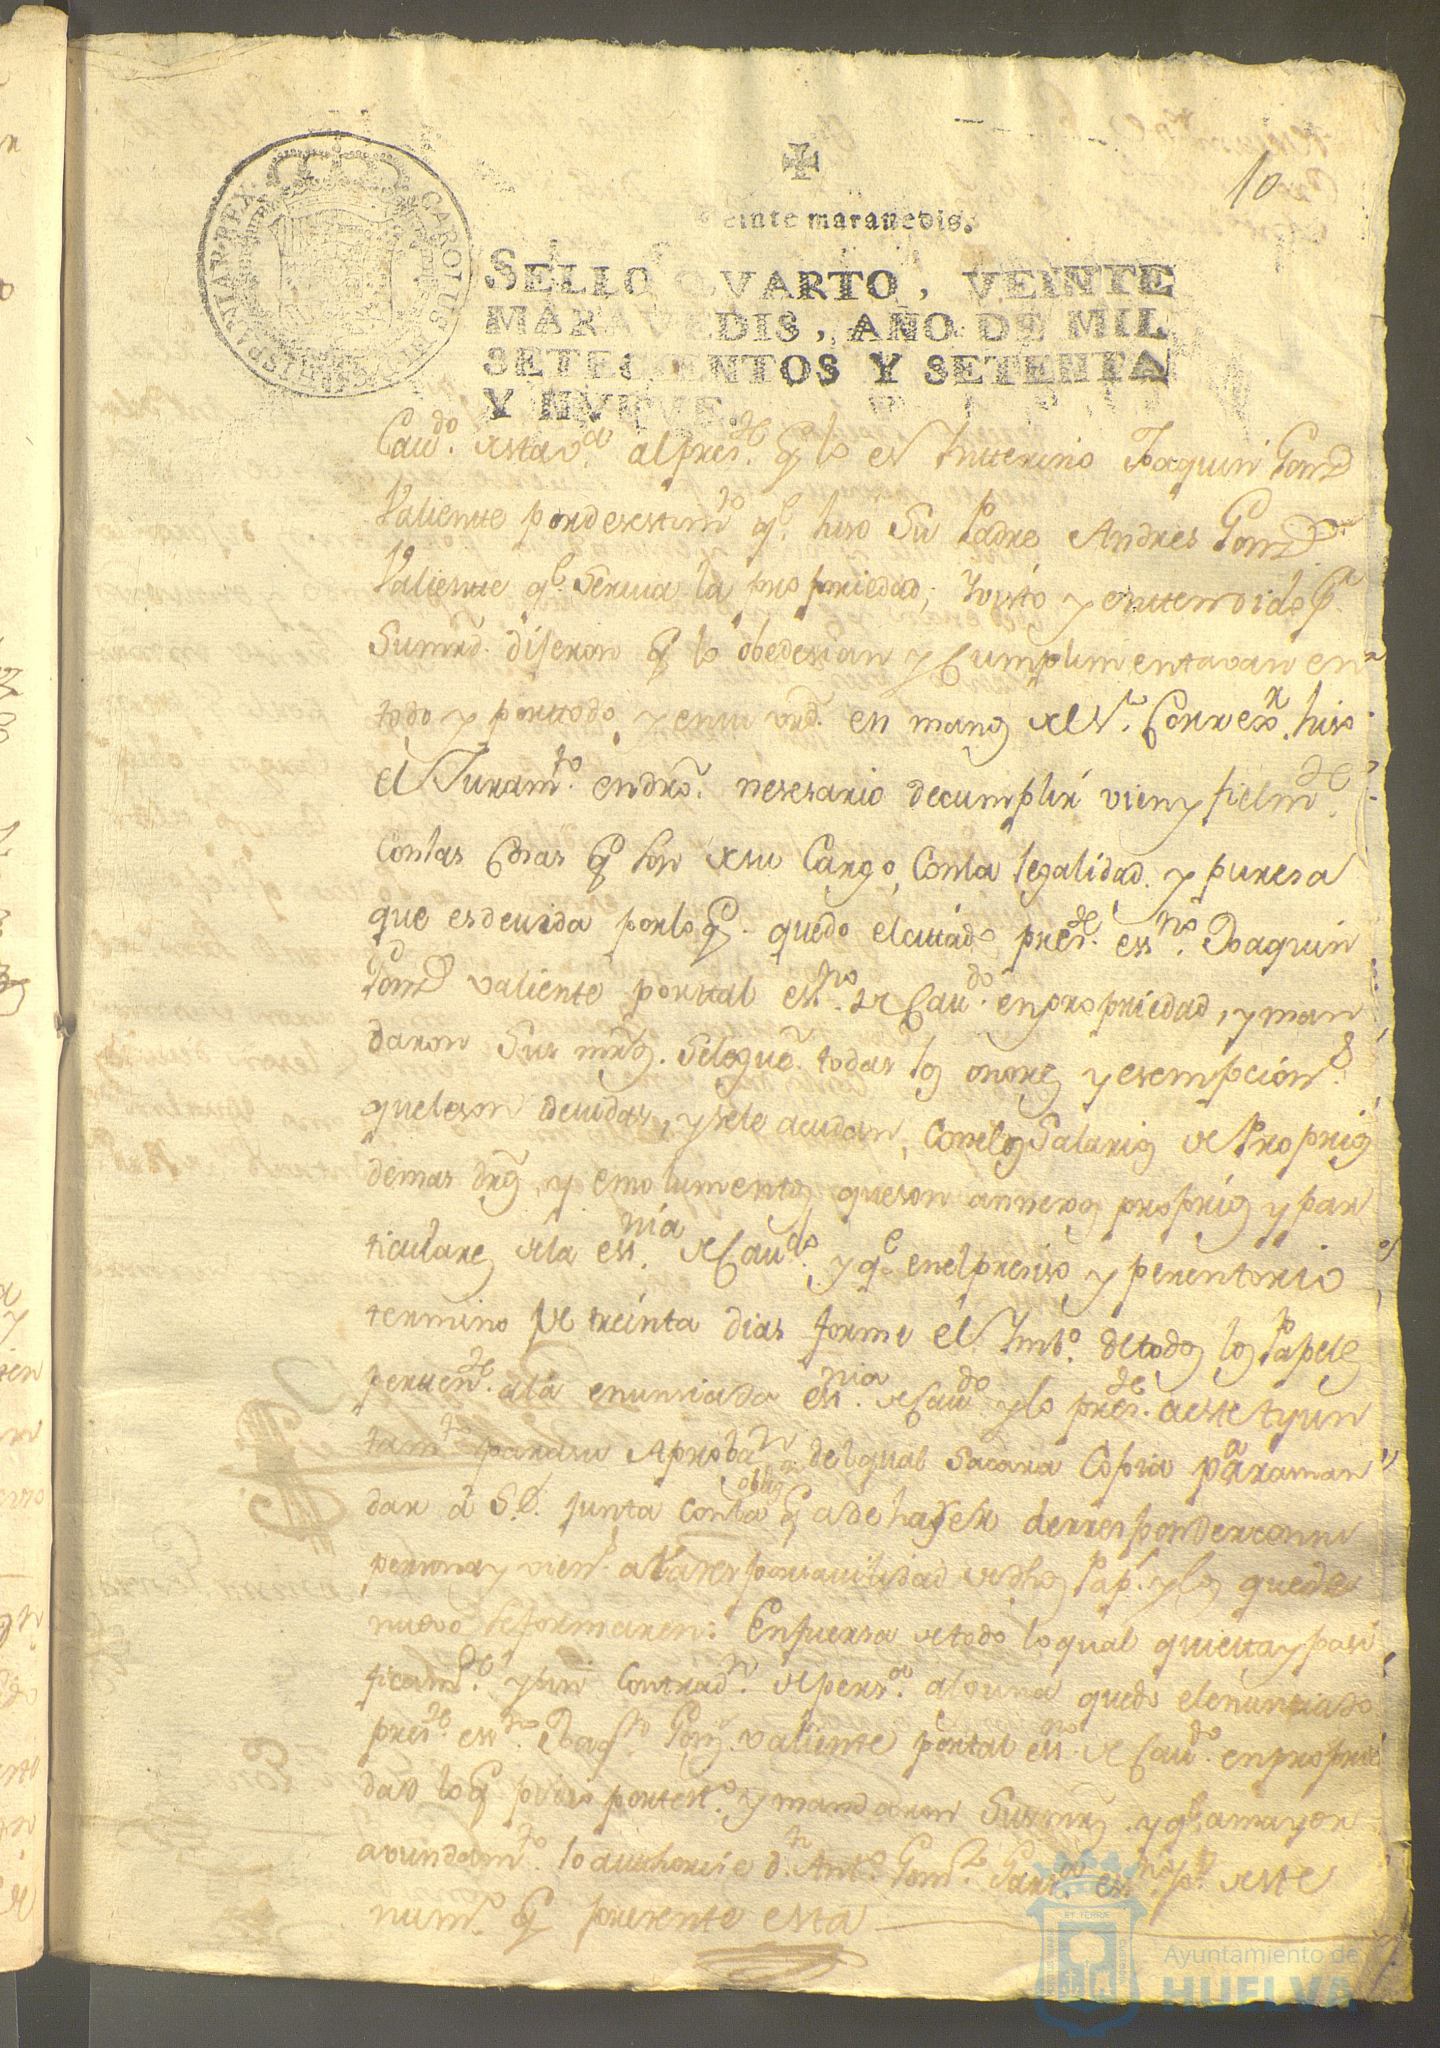 10
Veinte maravedis.
SELLO QVARTO, VEINTE
MARAVEDIS, AÑO DE MIL
SETECIENTOS Y SETENTA
Y NVEVE.
CAROLUS III D G HISPANIAR REX
Cav.do de esta v.a al pres.te q lo es Ynterino Joaquin Gomz
Valiente por desestim.to q.e hiso Su Padre Andres Gomz
Valiente q.e Servia la propriedad; Y visto y entendido p.r
Sumrd. dijeron q lo obedesian y Cumplimentavan en
todo y por todo, y en su vrd. en manos del S.r Correx.r hiso
el Juram.to en dro. nesesario de cumplir vien y fielm.te
con las Cosas q son de su Cargo, Con la legalidad, y puresa
que es devida por lo q. quedo el citado pres.te ess.no Joaquin
Gomz valiente por tal ess.no de Cav.do en propriedad, y man
daron Sus mrds. Se le gue.n todas los onores y esempcion.s
que le son devidas, y se le acudan, Con los Salarios de Proprios
demas dros, y emolumentos que son annexos proprios y par
ticulares de la ess.nia de Cav.do, y q.e en el presiso y perentorio
termino de treinta dias forme el Ymb.o de todos los Papeles
perten.te a la enunciada ess.nia de Cav.do y lo pres.te a este Ayun
tam.to para su Aproba.n del qual Sacara Copia para man
dar á S.E. junta con la oblig.n q a de haser de responder con su
persona y vien.s a la responsavilidad de dhos Pap.s y los que de
nuevo se formaren: En fuersa de todo lo qual quieta y pasi
ficam.te y sin Contrad.n de pers.a alguna quedo el enunciado
pres.te ess.no Joaq.n Gomz. valiente por tal ess.no de Cav.do en proprie
dad lo q pidio por test.o y mandaron Sus mrds y q.e a mayor
avundam.to lo authorise d.n Ant.o Gom.z Gars.a ess.no p.co de este
num.o q presente esta
Ayuntamiento de
HUELVA